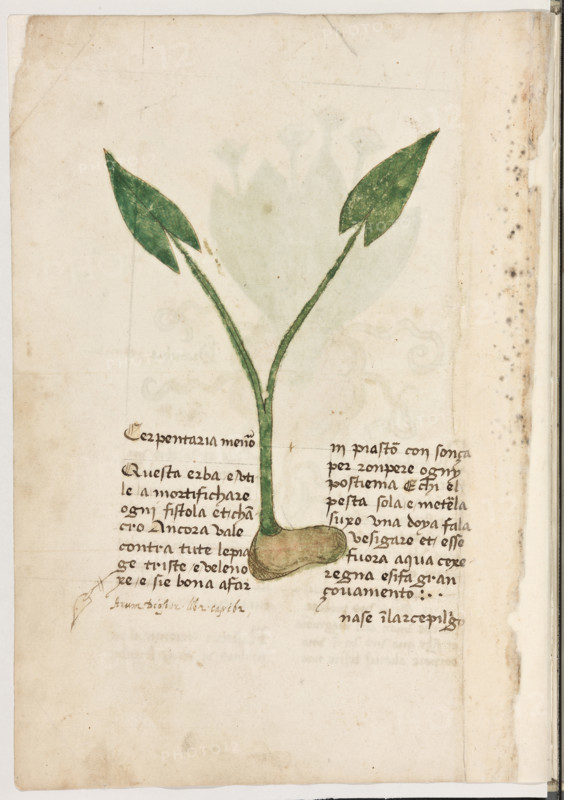 Cerpentaria meno
Questa erba e uti
le a mortifichare
ogni fistola et chã
cro Ancora vale
contra tute le pia
ge triste e veleno
xe e sie bona a far
in piastõ con sonça
per ronpere ogny
postiema E chi el
pesta sola e metela
suxo una doya fala
vesigare et esse
fuora aqua cexe
regna e sifa gran
çouamento :··
nase